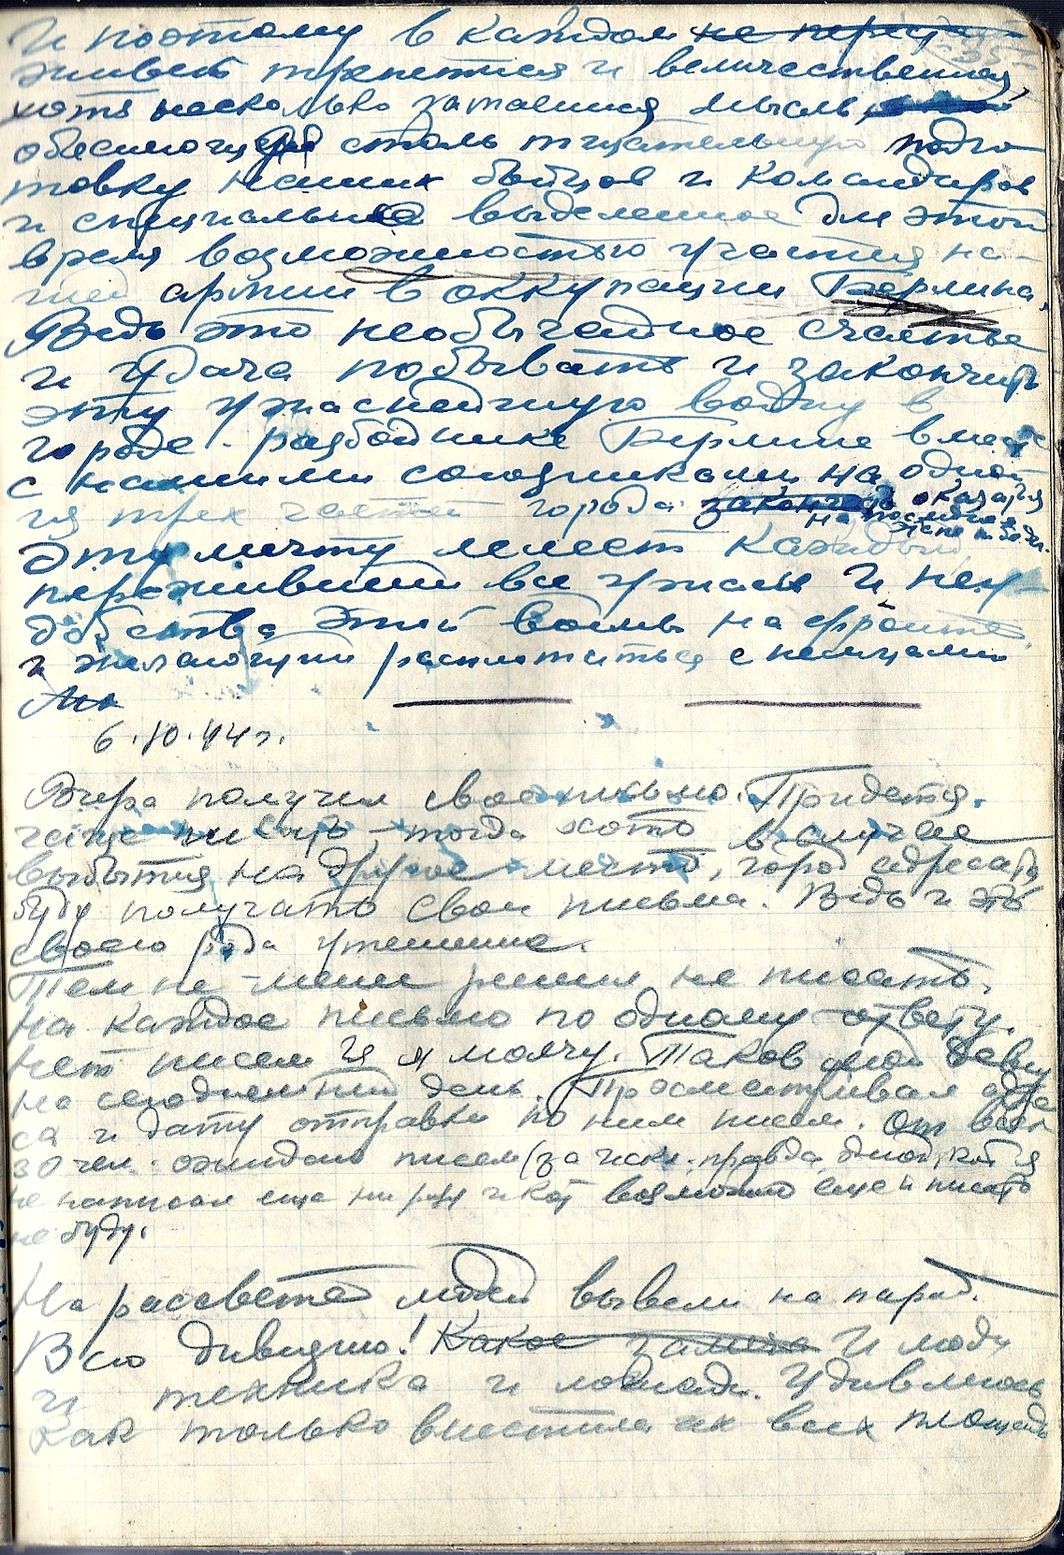 И поэтому в каждом не
живет трепетная и величественная,
хотя несколько затаенная мысль,
столь тщательную подго
товку наших бойцов и командиров
и специально выделенное для этой
время возможностью участия на-
шей армии в оккупации Берлина.
Ведь это необычайное счастье
и удача побывать и закончить
эту ужаснейшую войну в
городе-разбойнике Берлине вместе
с нашими союзниками на одной
из трех частей города закончить оказаться
на последнем
этапе победы.
Эту мечту лелеет каждый
переживший все ужасы и неу-
добства этой войны на фронте
и желающий расплатиться с немцами
6.10.44 г.
Вчера получил свое письмо. Придется
чаще писать - тогда хоть в случае
выбытия на другое место, город адресата,
буду получать свои письма. Ведь и это
своего рода утешение.
Тем не менее решил не писать.
На каждое письмо по одному ответу.
Нет писем и я молчу. Таков мой девиз
на сегодняшний день. Просматривал адре
са и дату отправки по ним писем. От всех
30 чел. ожидаю писем (за искл. правда, одной, кот я
не написал еще ни разу и кот возможно еще и писать
не буду.
На рассвете людей вывели на парад.
Всю дивизию! Какое И люди
и техника и лошади. Удивляюсь
как только вместила их всех площадь